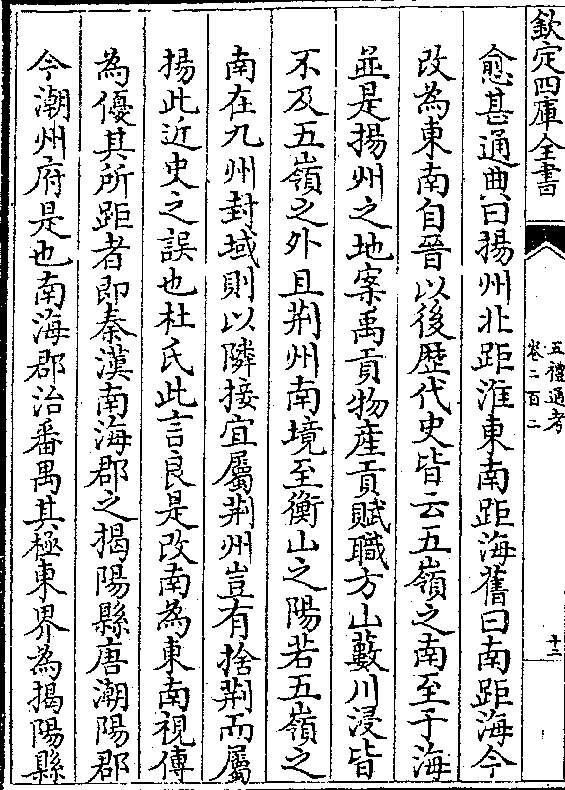 欽定四庫全書
五禮通考
卷二百二
十三
愈甚通典曰揚州北距淮東南距海舊曰南距海今
改為東南自晉以後歴代史皆云五嶺之南至于海
並是揚州之地案禹貢物產貢賦職方山藪川浸皆
不及五嶺之外且荆州南境至衡山之陽若五嶺之
南在九州封域則以隣接宜屬荆州豈有捨荆而屬
揚此近史之誤也杜氏此言良是改南為東南視傳
為優其所距者即秦漢南海郡之揭陽縣唐潮陽郡
今潮州府是也南海郡治番禺其極東界為揭陽縣